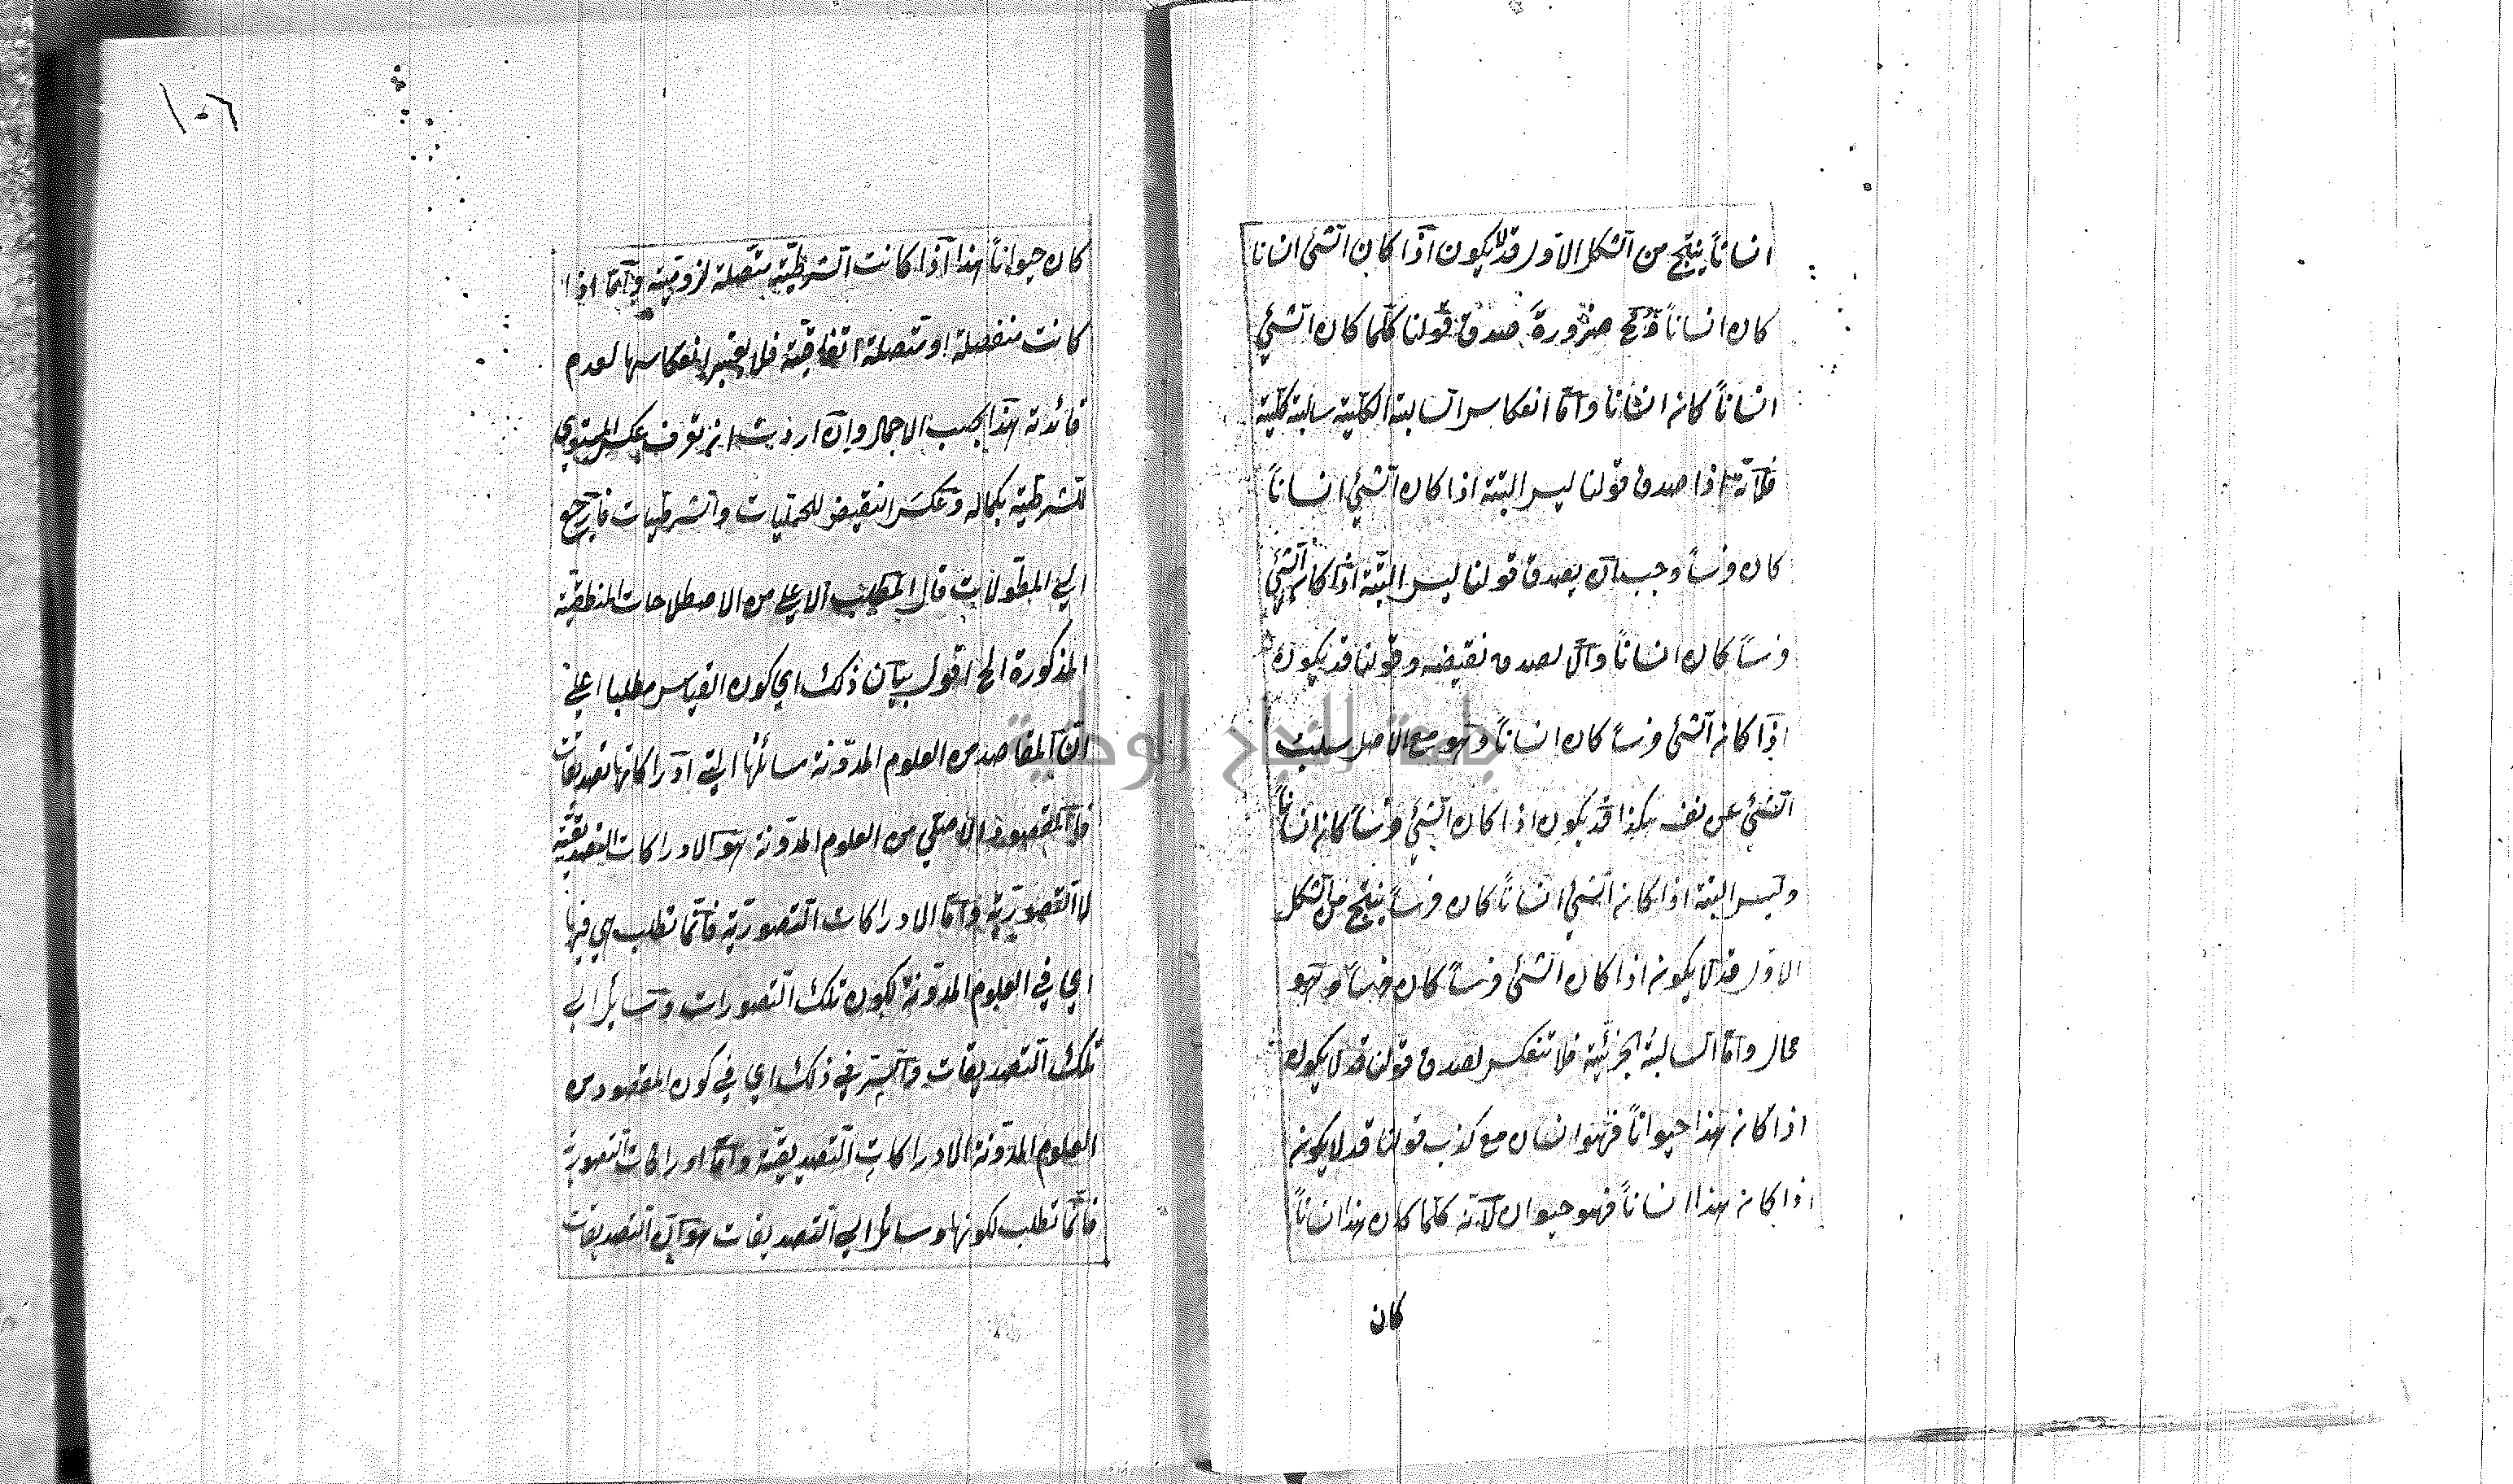 انساناً ينتج من الشكل الاول قد لا يكون اذا كان الشئ انسانا
كان انساناً وهو مح ضرورة صدق قولنا كلما كان الشئ
انساناً كان انساناً واما انعكاس السالبة الكلية سالبة كلية
فلانه اذا صدق قولنا ليس البتة اذا كان الشئ انساناً
كان فرساً وجب ان يصدق قولنا ليس البتة اذا كان الشئ
فرساً كان انساناً والا لصدق نقيضه وهو قولنا قد يكون
اذا كان الشئ فرساً كان انساناً وهو مع الاصل سلب
الشئ عن نفسه هكذا قد يكون اذا كان الشئ فرساً كان انساناً
وليس البتة اذا كان الشئ انساناً كان فرساً ينتج من الشكل
الاول قد لا يكون اذا كان الشئ فرساً كان فرساً وهو
محال واما السالبة الجزئية فلا تنعكس لصدق قولنا قد لا يكون
اذا كان هذا حيواناً فهو انسان مع كذب قولنا قد لا يكون
اذا كان هذا انساناً فهو حيوان لانه كلما كان هذا انساناً
كان
١٠٦
كان حيواناً هذا اذا كانت الشرطية متصلة لزومية واما اذا
كانت منفصلة او متصلة اتفاقية فلا يعتبر انعكاسها لعدم
فائدته هذا بحسب الاجمال وان اردت ان تعرف عكس المستوي
للشرطية بكماله وعكس النقيض للحمليات والشرطيات فارجع
الى المطولات قال المطلب الاعلى من الاصطلاحات المنطقية
المذكورة الخ اقول بيان ذلك اي كون القياس مطلبا اعلى
ان المقاصد من العلوم المدونة مسائلها التي ادراكاتها تصديقات
فالمقصود الاصلي من العلوم المدونة هو الادراكات التصديقية
لا التصورية واما الادراكات التصورية فانما تطلب هي فيها
اي في العلوم المدونة لكون تلك التصورات وسائل الى
تلك التصديقات والسر في ذلك اي في كون المقصود من
العلوم المدونة الادراكات التصديقية واما ادراكات التصورية
فانما تطلب لكونها وسائل الى التصديقات هو ان التصديقات